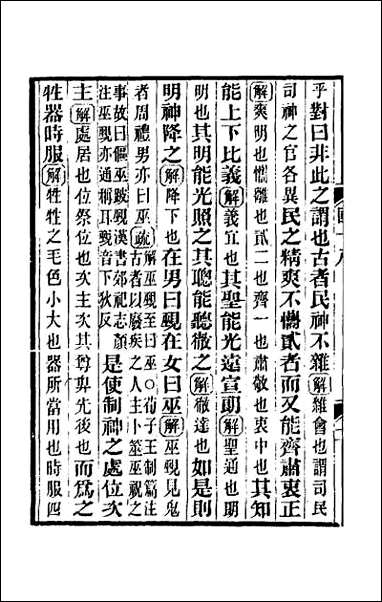 乎對曰非此之謂也古者民神不雜解雜會也謂司民
司神之官各異民之精爽不懏貳者而又能齊肅衷正
解爽明也懏離也貳二也齊一也肅敬也衷中也其知
能上下比義解義宜也其聖能光遠宣朗解聖通也朗
明也其明能光照之其聰能聽徹之解徹達也如是則
明神降之解降下也在男曰覡在女曰巫解巫覡見鬼
者周禮男亦曰巫疏
解巫覡至曰巫○荀子王制篇注
古者以廢疾之人主卜筮巫祝之
事故曰傴巫跛覡漢書郊祀志顏
注巫亦通稱耳覡音下狄反
是使制神之處位次
主解處居也位祭位也次主次其尊卑先後也而為之
牲器時服解牲牲之毛色小大也器所當用也時服四